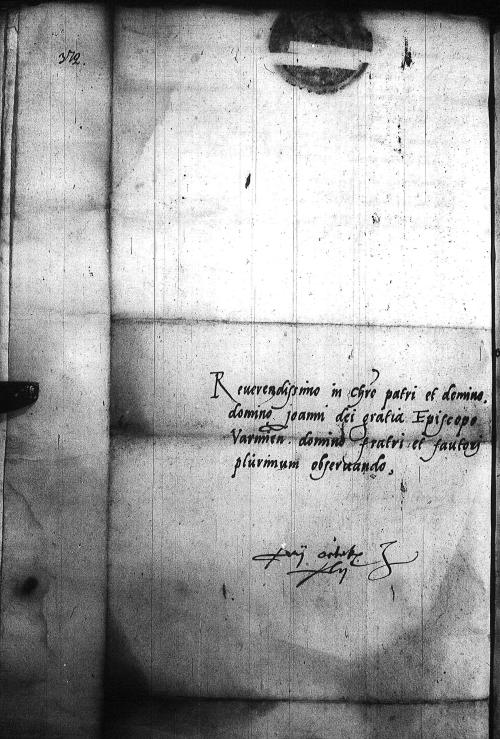 Reverendissimo in chro patri et domino.
domino joanni dei gratia Episcopo
Varmien. domino fratri et fautori
plurimum observando,
octob